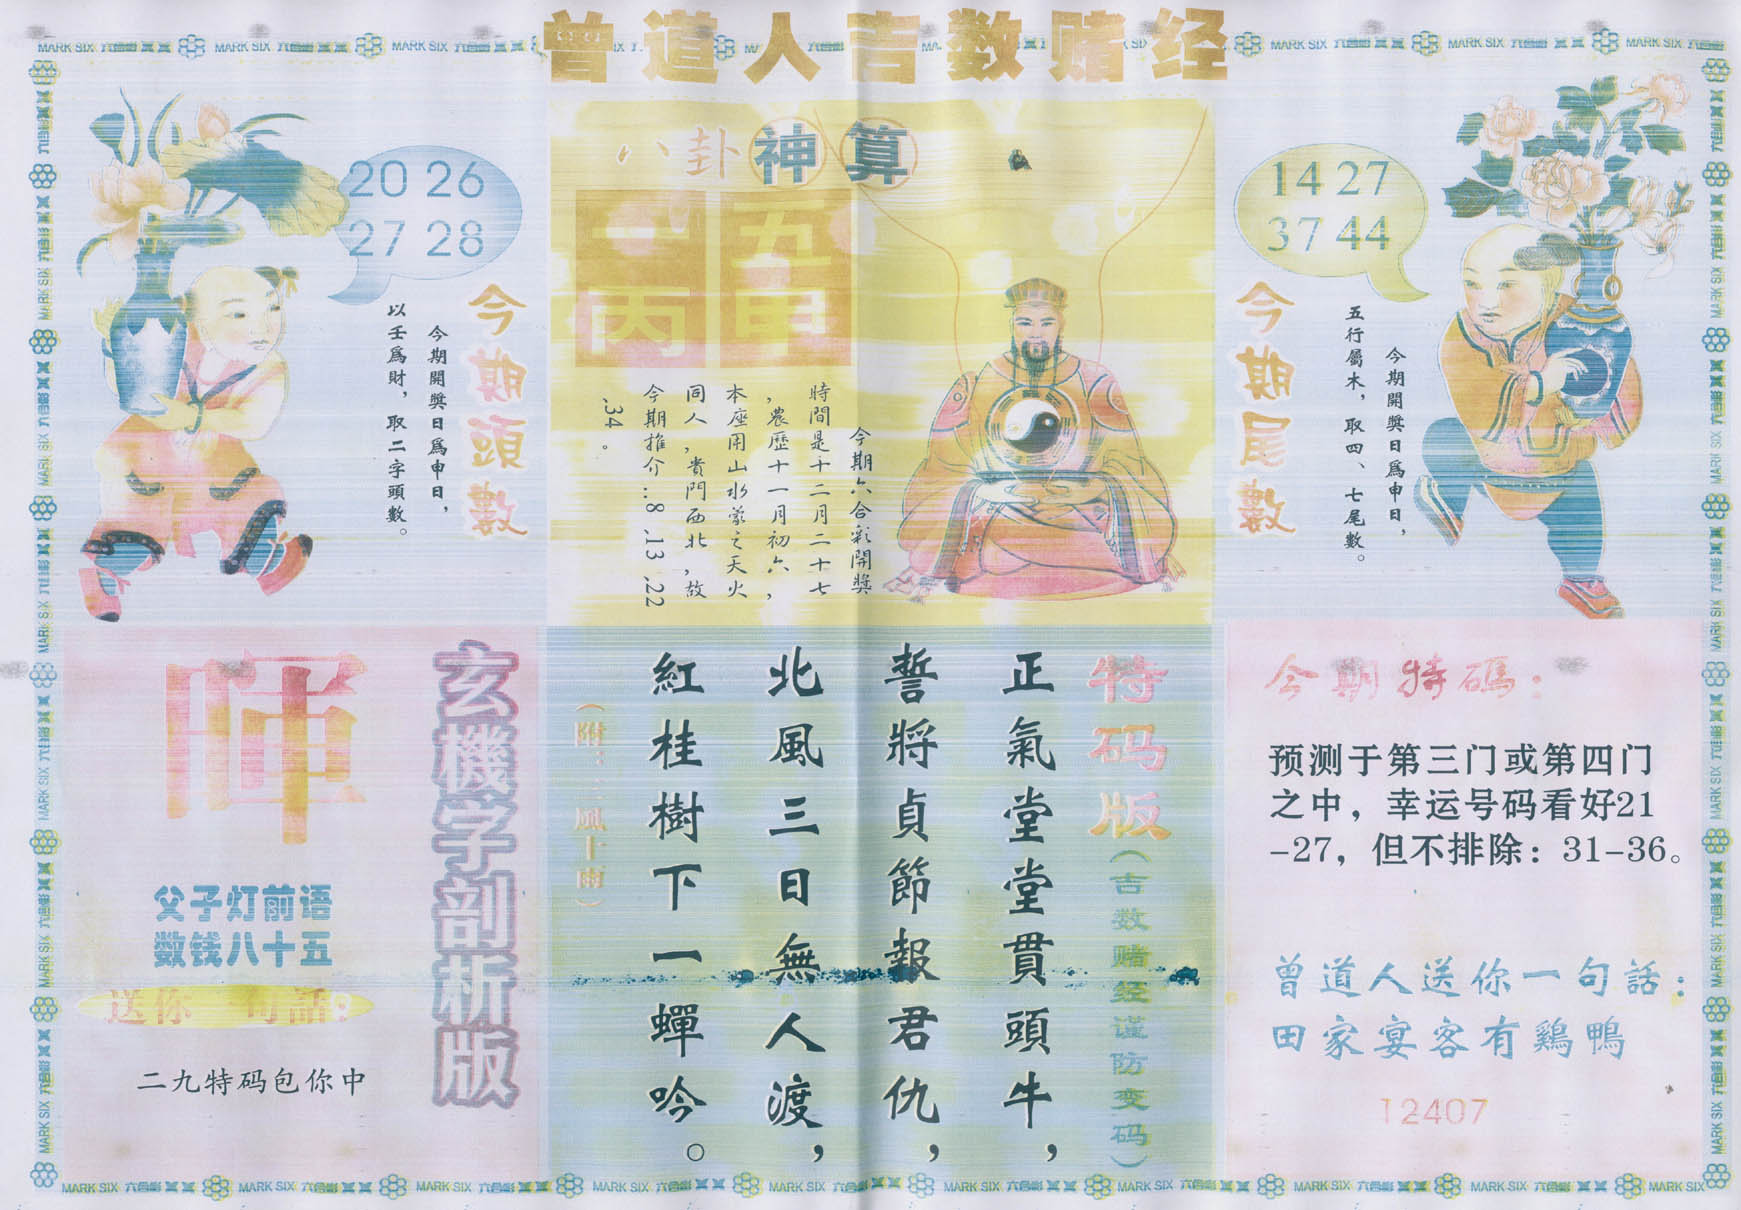 曾道人吉数赌经
MARK SIX 六合彩
八卦神算
五甲
一丙
今期六合彩開獎
時間是十二月二十七
，農歷十一月初六，
本座用山水蒙之天火
同人，貴門西北，故
今期推介…8、13、22
、34。
20 26
27 28
今期頭數
今期開獎日爲申日，
以壬爲財，取二字頭數。
14 27
37 44
今期尾數
今期開獎日爲申日，
五行屬木，取四、七尾數。
玄機字剖析版
暉
父子灯前语
数钱八十五
送你一句話：
二九特码包你中
特码版（吉数赌经谨防变码）
正氣堂堂貫頭牛，
誓將貞節報君仇，
北風三日無人渡，
紅桂樹下一蟬吟。
（附：三風十雨）
今期特碼：
预测于第三门或第四门
之中，幸运号码看好21
-27，但不排除：31-36。
曾道人送你一句話：
田家宴客有鷄鴨
12407